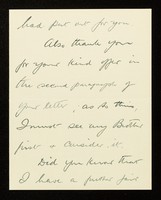 had put out for you.
Also thank you
for your kind offer in
the second paragraph of
your letter, as to this,
I must see my Brother
first & consider it.
Did you know that
I have a further paid